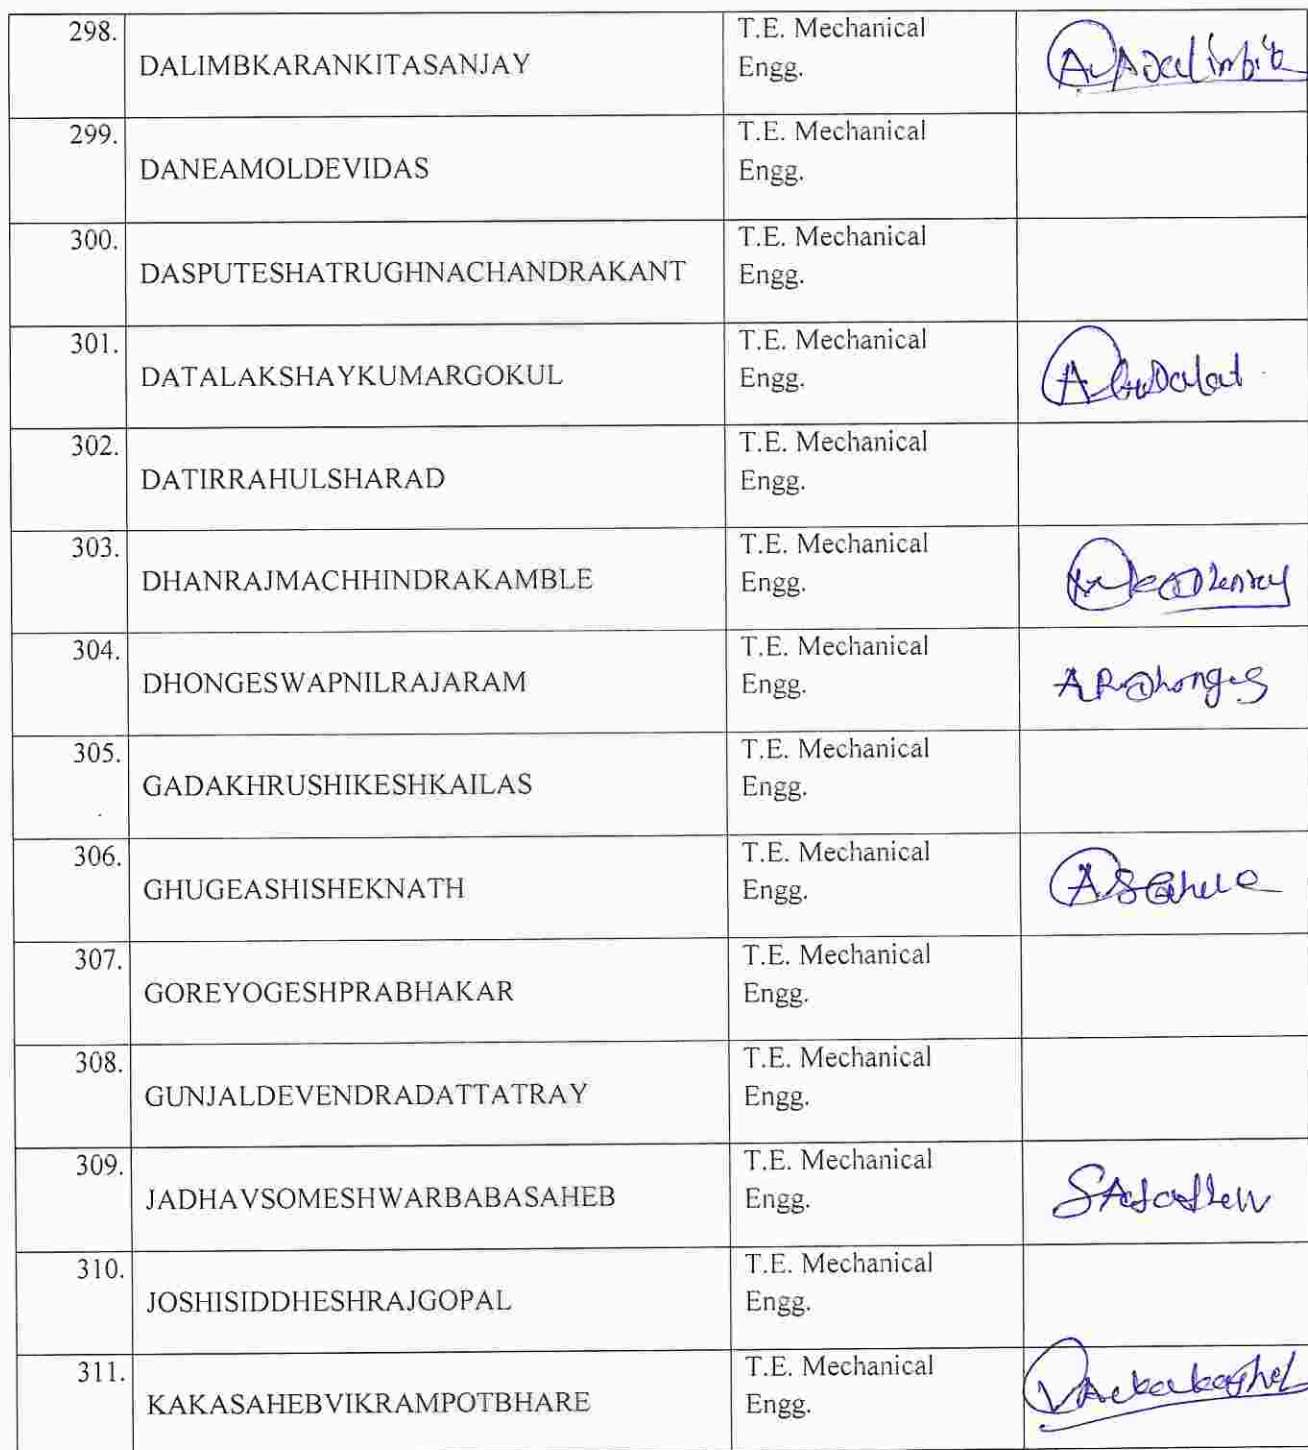 298.
DALIMBKARANKITASANJAY
T.E. Mechanical
Engg.
299.
DANEAMOLDEVIDAS
T.E. Mechanical
Engg.
300.
DASPUTESHATRUGHNACHANDRAKANT
T.E. Mechanical
Engg.
301.
DATALAKSHAYKUMARGOKUL
T.E. Mechanical
Engg.
302.
DATIRRAHULSHARAD
T.E. Mechanical
Engg.
303.
DHANRAJMACHHINDRAKAMBLE
T.E. Mechanical
Engg.
304.
DHONGESWAPNILRAJARAM
T.E. Mechanical
Engg.
305.
GADAKHRUSHIKESHKAILAS
T.E. Mechanical
Engg.
306.
GHUGEASHISHEKNATH
T.E. Mechanical
Engg.
307.
GOREYOGESHPRABHAKAR
T.E. Mechanical
Engg.
308.
GUNJALDEVENDRADATTATRAY
T.E. Mechanical
Engg.
309.
JADHAVSOMESHWARBABASAHEB
T.E. Mechanical
Engg.
310.
JOSHISIDDHESHRAJGOPAL
T.E. Mechanical
Engg.
311.
KAKASAHEBVIKRAMPOTBHARE
T.E. Mechanical
Engg.